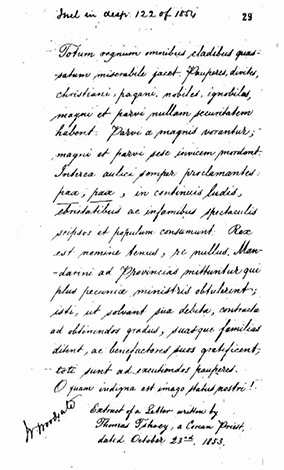 Incl in desp. 122 of 1854
29
Totum regnum omnibus cladibus quas-
satum miserabile jacet. Pauperes, divites,
christiani, pagani, nobiles, ignobiles,
magni et parvi nullam securitatem
habent. Parvi a magnis vorantur;
magni et parvi sese invicem mordent.
Interea aulici semper proclamantes:
pax, pax, in continuis ludis,
ebrietatibus ac infamibus spectaculis
seipsos et populum consumunt. Rex
est nomine tenus, re nullus. Man-
darini ad Provincias mittuntur qui
plus pecuniæ ministris obtulerint;
isti, ut solvant sua debita, contracta
ad obtinendos gradus, suasque familias
ditent, ac benefactores suos gratificent,
toti sunt ad exactiondos pauperes.
O quam indigna est imago status nostri!
Extract of a Letter written by
Thomas Tshoey, a Corean Priest,
dated October 23rd, 1853.
Woodgate